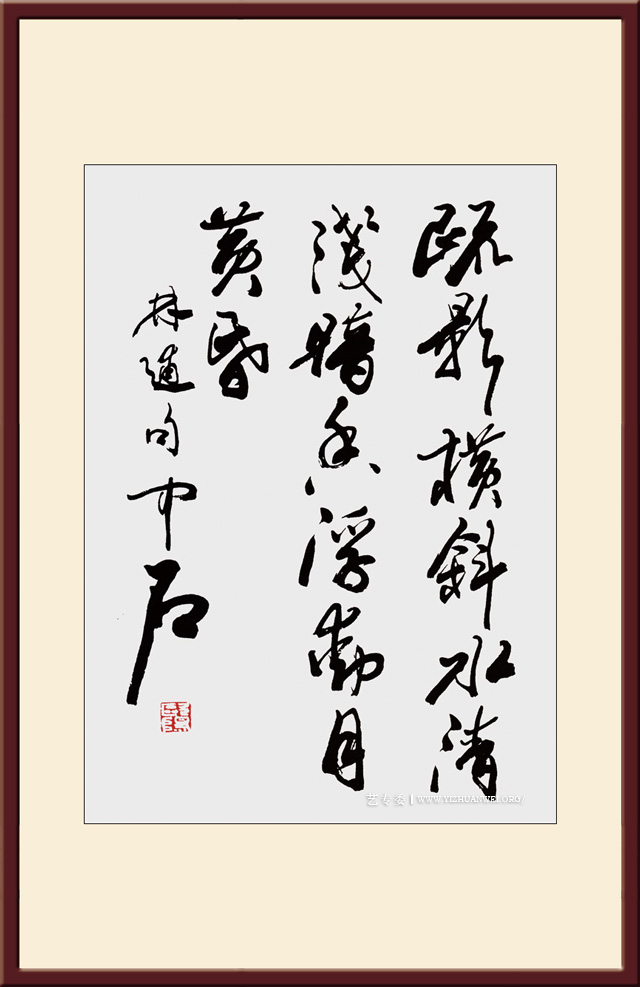 疏影橫斜水清
淺暗香浮動月
黄昏
林逋句 中石
艺专委 | WWW.YIZHUANWEI.ORG/